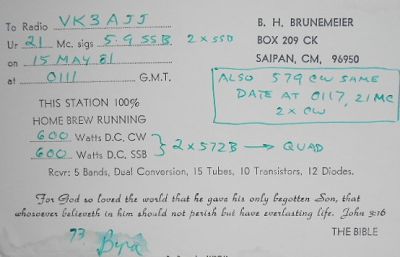 To Radio VK3AJJ
Ur 21 Mc. sigs 5-9 SSB 2 x SSB
on 15 MAY 81
at 0111 G.M.T.
B. H. BRUNEMEIER
BOX 209 CK
SAIPAN, CM, 96950
ALSO 579 CW SAME
DATE AT 0117, 21 MC
2 x CW
THIS STATION 100%
HOME BREW RUNNING
600 Watts D.C. CW
600 Watts D.C. SSB
2 x 572B → QUAD
Rcvr: 5 Bands, Dual Conversion, 15 Tubes, 10 Transistors, 12 Diodes.
For God so loved the world that he gave his only begotten Son, that
whosoever believeth in him should not perish but have everlasting life. John 3:16
THE BIBLE
73
Byrd